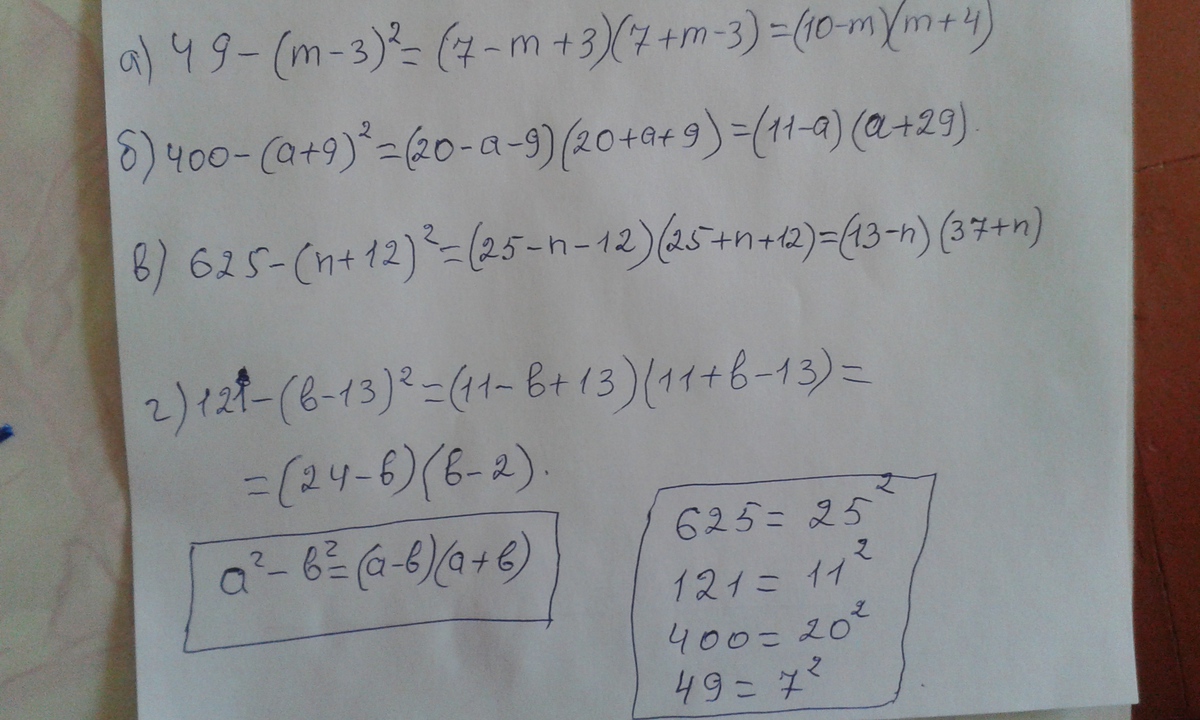 а) 49-(m-3)²=(7-m+3)(7+m-3)=(10-m)(m+4)
б) 400-(a+9)²=(20-a-9)(20+a+9)=(11-a)(a+29).
в) 625-(n+12)²=(25-n-12)(25+n+12)=(13-n)(37+n)
г) 121-(в-13)²=(11-в+13)(11+в-13)=
=(24-в)(в-2).
a²-в²=(a-в)(a+в)
625=25²
121=11²
400=20²
49=7²